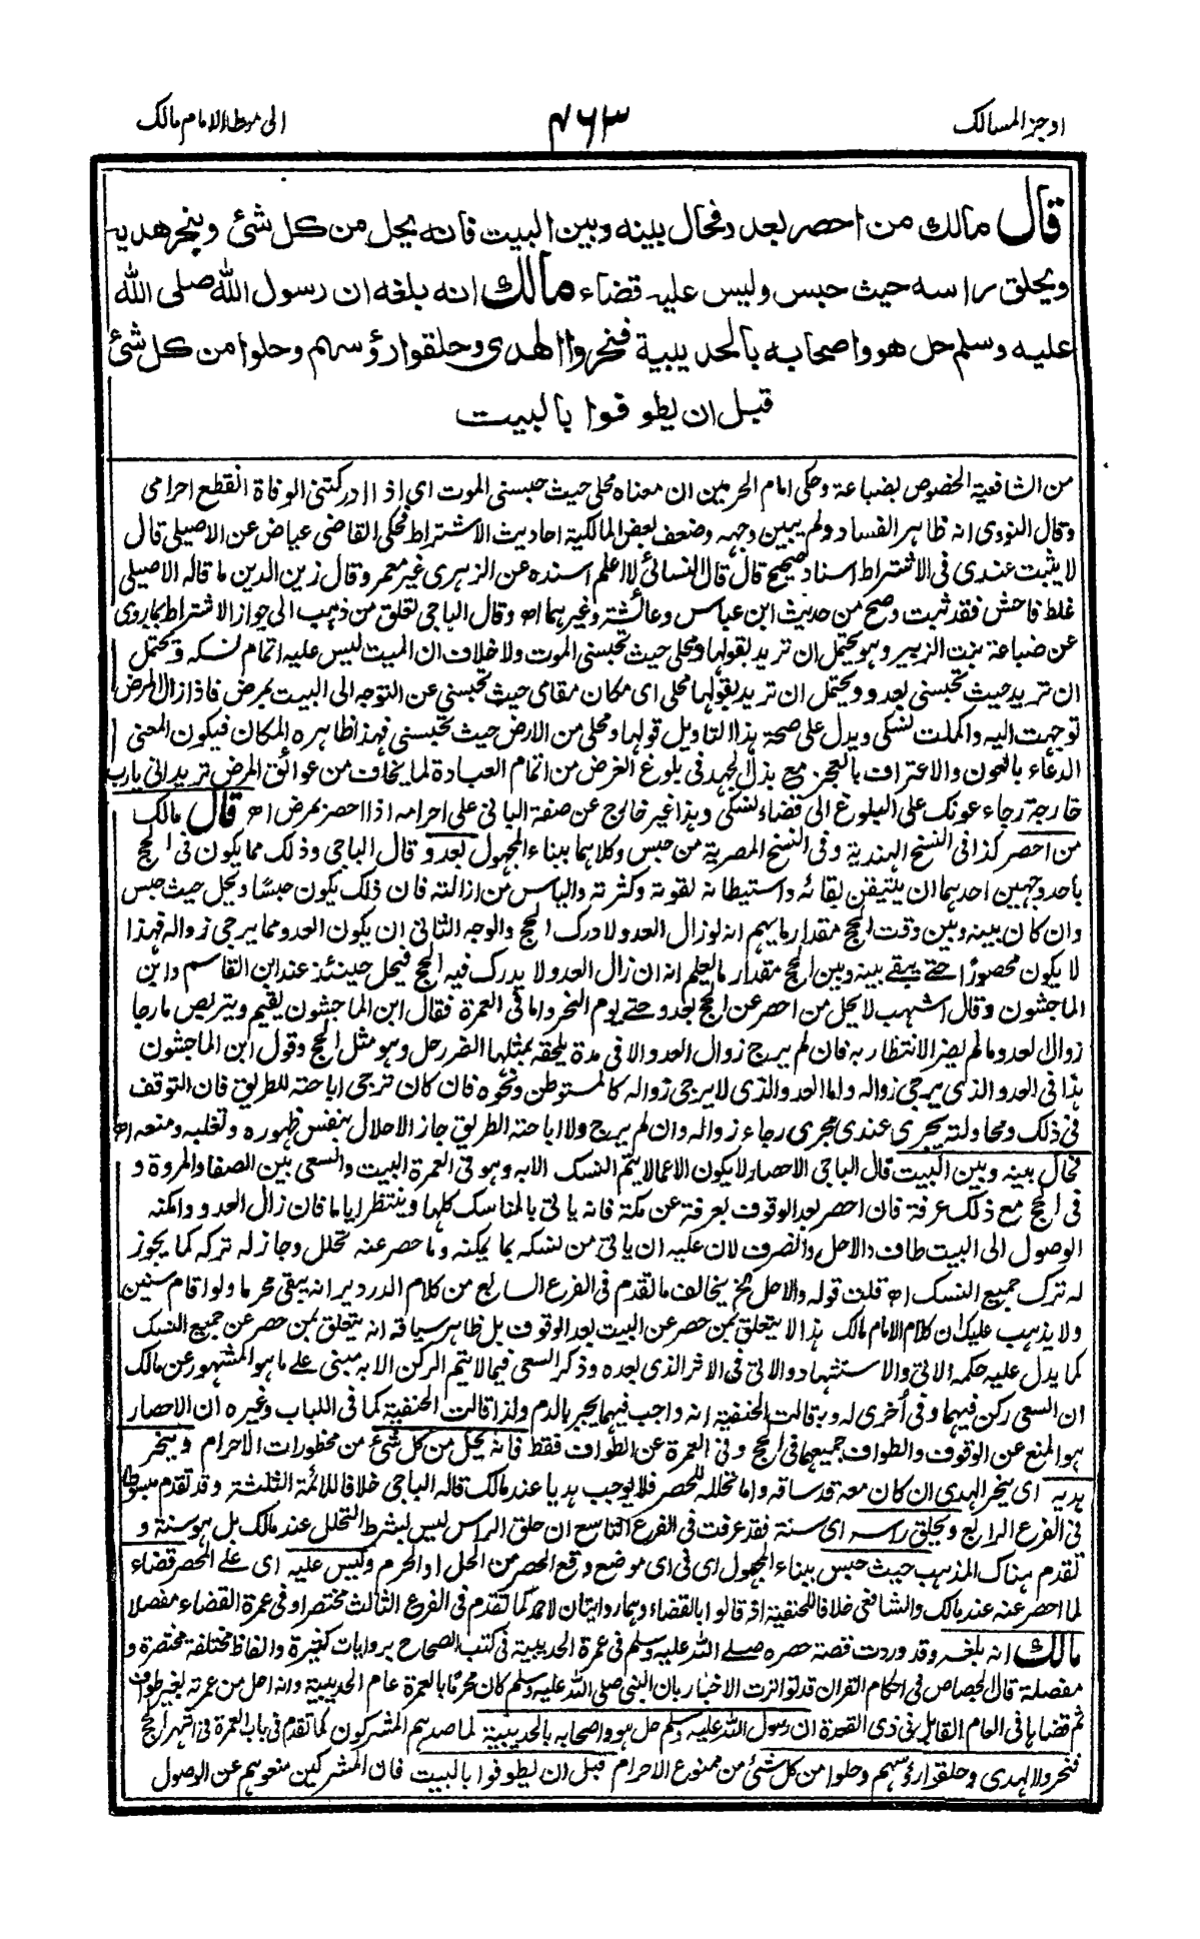 اوجز المسالك
٤٦٣
الى موطا الامام مالك
قال مالك من احصر بعدو فحال بينه وبين البيت فانه يحل من كل شئ وينحر هديه
ويحلق راسه حيث حبس وليس عليه قضاء مالك انه بلغه ان رسول الله صلى الله
عليه وسلم حل هو واصحابه بالحديبية فنحروا الهدى وحلقوا رؤسهم وحلوا من كل شئ
قبل ان يطوفوا بالبيت
من الشافعية الخصوص بضباعة وحكى امام الحرمين ان معناه محلى حيث حبسنى الموت اى اذا ادركتنى الوفاة انقطع احرامى
وقال النووى انه ظاهر الفساد ولم يبين وجهه وضعف بعض المالكية احاديث الاشتراط فحكى القاضى عياض عن الاصيلى قال
لا يثبت عندى فى الاشتراط اسناد صحيح قال قال النسائى لا اعلم اسنده عن الزهرى غير معمر وقال زين الدين ما قاله الاصيلى
غلط فاحش فقد ثبت وصح من حديث ابن عباس وعائشة وغيرهما اه وقال الباجى تعلق من ذهب الى جواز الاشتراط بما روى
عن ضباعة بنت الزبير وهو يحتمل ان تريد بقولها ومحلى حيث تحبسنى الموت ولا خلاف ان الميت ليس عليه اتمام نسكه ويحتمل
ان تريد حيث تحبسنى بعدو ويحتمل ان تريد بقولها محلى اى مكان مقامى حيث تحبسنى عن التوجه الى البيت بمرض فاذا زال المرض
توجهت اليه واكملت نسكى ويدل على صحة هذا التاويل قولها ومحلى من الارض حيث تحبسنى فهذا ظاهره المكان فيكون المعنى
الدعاء بالعون والاعتراف بالعجز مع بذل الجهد فى بلوغ الغرض من اتمام العبادة لما يخاف من عوائق المرض تريد انى يارب
خارجة رجاء عونك على البلوغ الى قضاء نسكى وهذا غير خارج عن صفة الباقى على احرامه اذا احصر بمرض اه قال مالك
من احصر كذا فى النسخ الهندية وفى النسخ المصرية من حبس وكلاهما ببناء المجهول بعدو قال الباجى وذلك مما يكون فى الحج
باحد وجهين احدهما ان يتيقن بقائه واستيطانه لقوته وكثرته والياس من ازالته فان ذلك يكون حبسًا ويحل حيث حبس
وان كان بينه وبين وقت الحج مقدار ما يعلم انه لو زال العدو لادرك الحج والوجه الثانى ان يكون العدو مما يرجى زواله فهذا
لا يكون محصورًا حتى يبقى بينه وبين الحج مقدار ما يعلم انه ان زال العدو لا يدرك فيه الحج فيحل حينئذ عند ابن القاسم وابن
الماجشون وقال اشهب لا يحل من احصر عن الحج بعدو حتى يوم النحر واما فى العمرة فقال ابن الماجشون يقيم ويتربص ما رجا
زوال العدو ما لم يضر الانتظار به فان لم يرج زوال العدو الا فى مدة يلحقه بمثلها الضرر حل وهو مثل الحج وقول ابن الماجشون
هذا فى العدو الذى يرجى زواله واما العدو الذى لا يرجى زواله كالمستوطن ونحوه فان كان ترجى اباحته للطريق فان التوقف
فى ذلك ومحاولته يجرى عندى مجرى رجاء زواله وان لم يرج ولا اباحة الطريق جاز الاحلال بنفس ظهوره وتغلبه ومنعه اه
فحال بينه وبين البيت قال الباجى الاحصار لا يكون الا عما لا يتم النسك الا به وهو فى العمرة البيت والسعى بين الصفا والمروة و
فى الحج مع ذلك عرفة فان احصر بعد الوقوف بعرفة عن مكة فانه ياتى بالمناسك كلها وينتظر اياما فان زال العدو وامكنه
الوصول الى البيت طاف والا حل وانصرف لان عليه ان ياتى من نسكه بما يمكنه وما حصر عنه تحلل وجاز له تركه كما يجوز
له ترك جميع النسك اه قلت قوله والا حل الخ يخالف ما تقدم فى الفرع السابع من كلام الدردير انه يبقى محرما ولو اقام سنين
ولا يذهب عليك ان كلام الامام مالك هذا لا يتعلق بمن حصر عن البيت بعد الوقوف بل ظاهر سياقه انه يتعلق بمن حصر عن جميع النسك
كما يدل عليه حكمه الاتى والاستشهاد والاتى فى الاثر الذى بعده وذكر السعى فيما لا يتم الركن الا به مبنى على ما هو المشهور عن مالك
ان السعى ركن فيهما وفى أخرى له وبه قالت الحنفية انه واجب فيهما يجبر بالدم ولذا قالت الحنفية كما فى اللباب وغيره ان الاحصار
هو المنع عن الوقوف والطواف جميعهما فى الحج وفى العمرة عن الطواف فقط فانه يحل من كل شئ من محظورات الاحرام وينحر
هديه اى ينحر الهدى ان كان معه قد ساقه واما تحلله للحصر فلا يوجب هديا عند مالك قاله الباجى خلافا للائمة الثلثة وقد تقدم مبسوطا
فى الفرع الرابع ويحلق راسه اى سنة فقد عرفت فى الفرع التاسع ان حلق الراس ليس بشرط التحلل عند مالك بل هو سنة و
تقدم هناك المذهب حيث حبس ببناء المجهول اى فى اى موضع وقع الحصر من الحل او الحرم وليس عليه اى على المحصر قضاء
لما احصر عنه عند مالك والشافعى خلافا للحنفية اذ قالوا بالقضاء وهما روايتان لاحمد كما تقدم فى الفرع الثالث مختصرا وفى عمرة القضاء مفصلا
مالك انه بلغه وقد وردت قصة حصره صلى الله عليه وسلم فى عمرة الحديبية فى كتب الصحاح بروايات كثيرة والفاظ مختلفة مختصرة و
مفصلة قال الجصاص فى احكام القران قد تواترت الاخبار بان النبى صلى الله عليه وسلم كان محرمًا بالعمرة عام الحديبية وانه احل من عمرته بغير طواف
ثم قضاها فى العام القابل فى ذى القعدة ان رسول الله عليه وسلم حل هو واصحابه بالحديبية لما صدهم المشركون كما تقدم فى باب العمرة فى اشهر الحج
فنحروا الهدى وحلقوا رؤسهم وحلوا من كل شئ من ممنوع الاحرام قبل ان يطوفوا بالبيت فان المشركين منعوهم عن الوصول